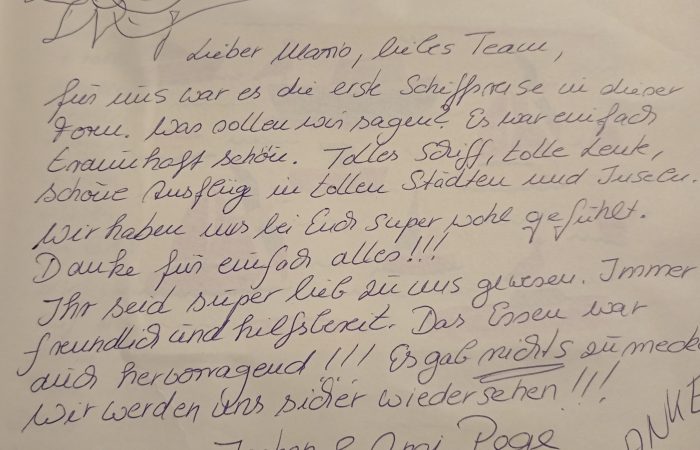 Lieber Mario, liebes Team,
für uns war es die erste Schiffsreise in dieser
Form. Was sollen wir sagen? Es war einfach
traumhaft schön. Tolles Schiff, tolle Leute,
schöne Ausflüg in tollen Städten und Inseln.
Wir haben uns bei Euch super wohl gefühlt.
Danke für einfach alles!!!
Ihr seid super lieb zu uns gewesen. Immer
freundlich und hilfsbereit. Das Essen war
auch hervorragend!!! Es gab nichts zu mecke
Wir werden uns sicher wiedersehen!!!
& Poge
ANKE